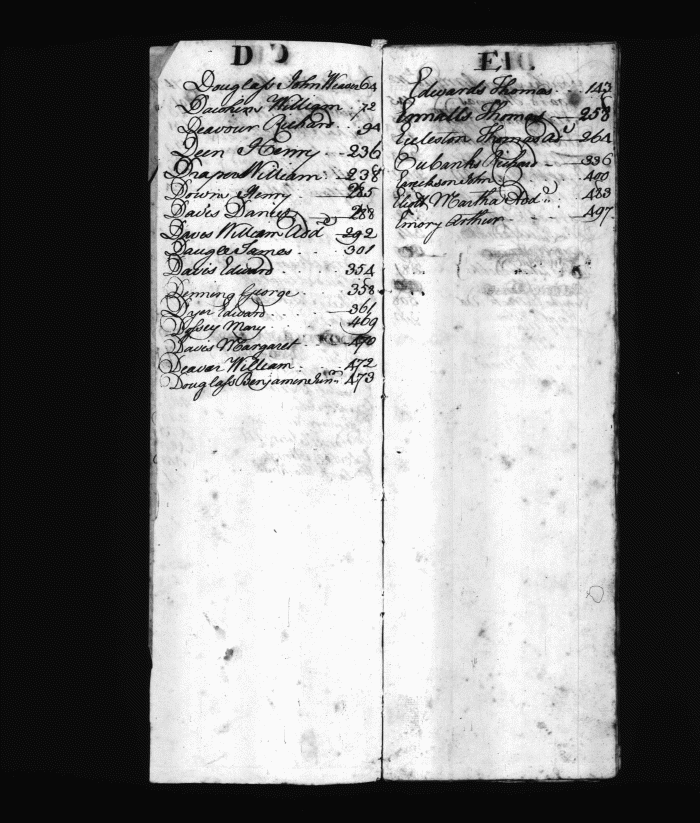 D
Douglass John Weaver 64
Dawkins William 72
Deavour Richard 94
Deen Henry 236
Draper William 238
Downs Henry 285
Daves Daniel 288
Daves William Add 292
Daugle James 301
Davis Edward 354
Denning George 358
Dyer Edward 361
Dossey Mary 469
Davis Margaret 470
Deaver William 472
Douglass Benjamin Junr 473
E
Edwards Thomas 143
Ennalls Thomas 258
Eccleston Thomas Ad 264
Eubanks Richard 336
Erickson John 400
Eliott Martha Add 483
Emory Arthur 497